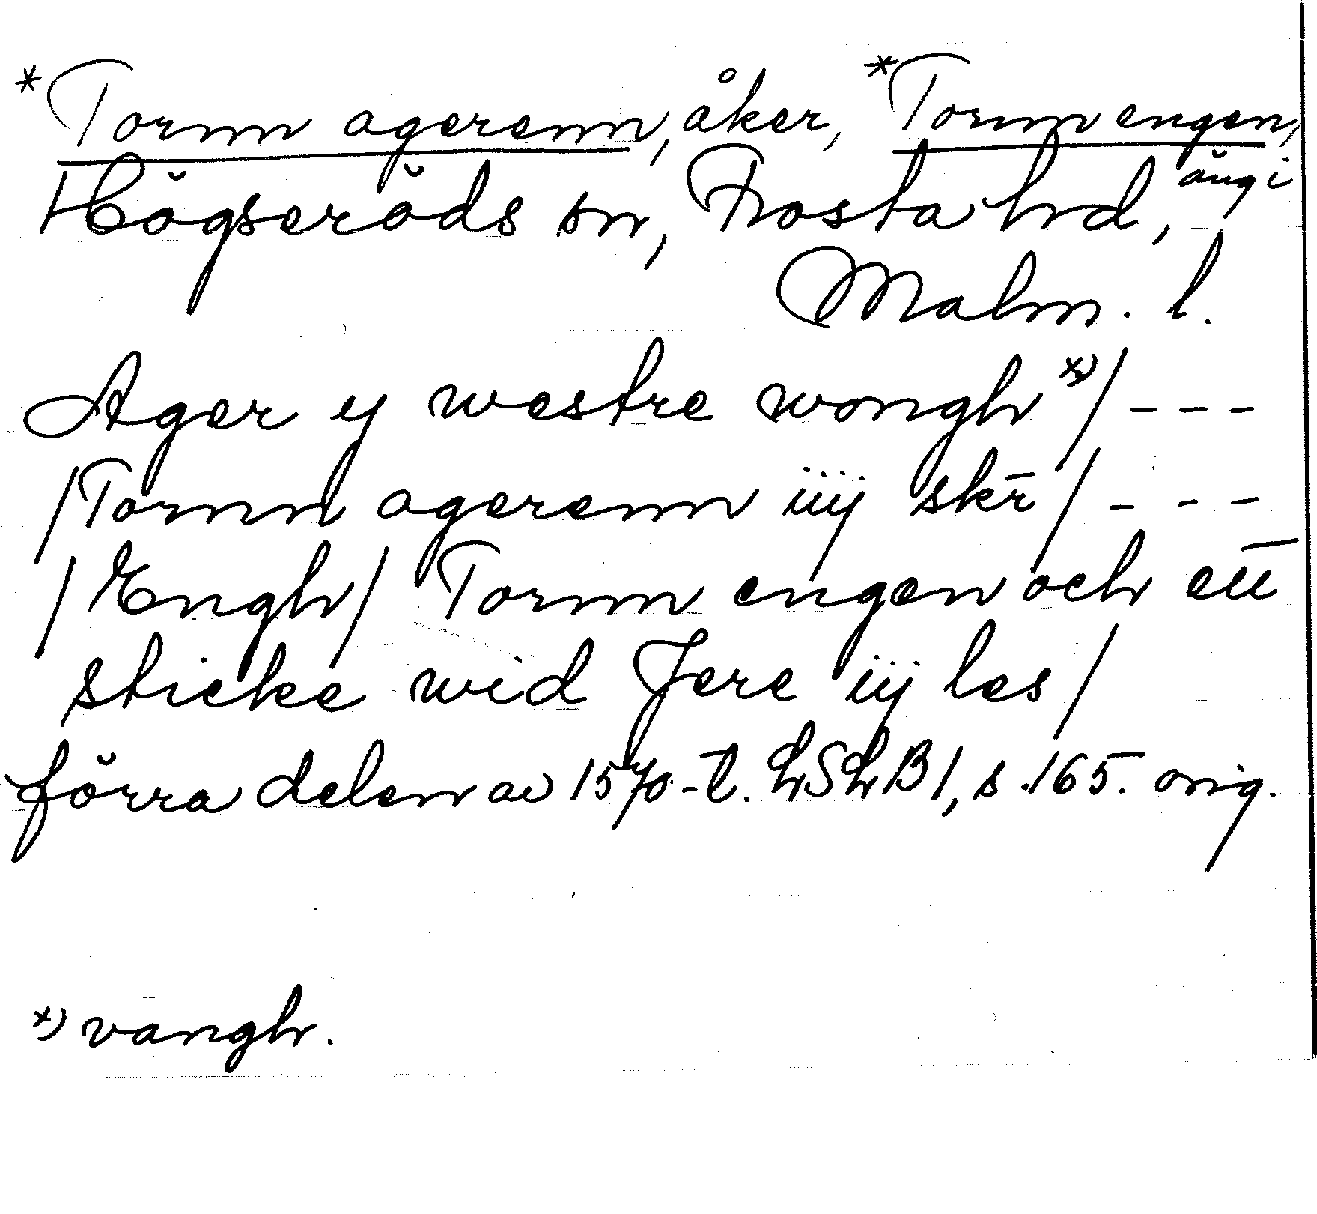 *Tornn agerenn, åker, *Tornn engen,
Högseröds sn, Frosta hrd, äng i
Malm. l.
Ager y westre wongh *)/ - - -
/Tornn agerenn iiij skr̄ / - - -
/Engh/ Tornn engen och ett
sticke wid Jere iij les /
förra delen av 1570-t. LSLB1, s. 165. orig.
*) vangh.